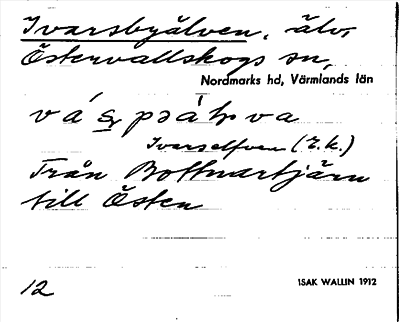 Ivarsbyälven, älv,
Östervallskogs sn,
Nordmarks hd, Värmlands län
Ivarselfven (E.k.)
Från Bottnartjärn
till Östen
12 ISAK WALLIN 1912